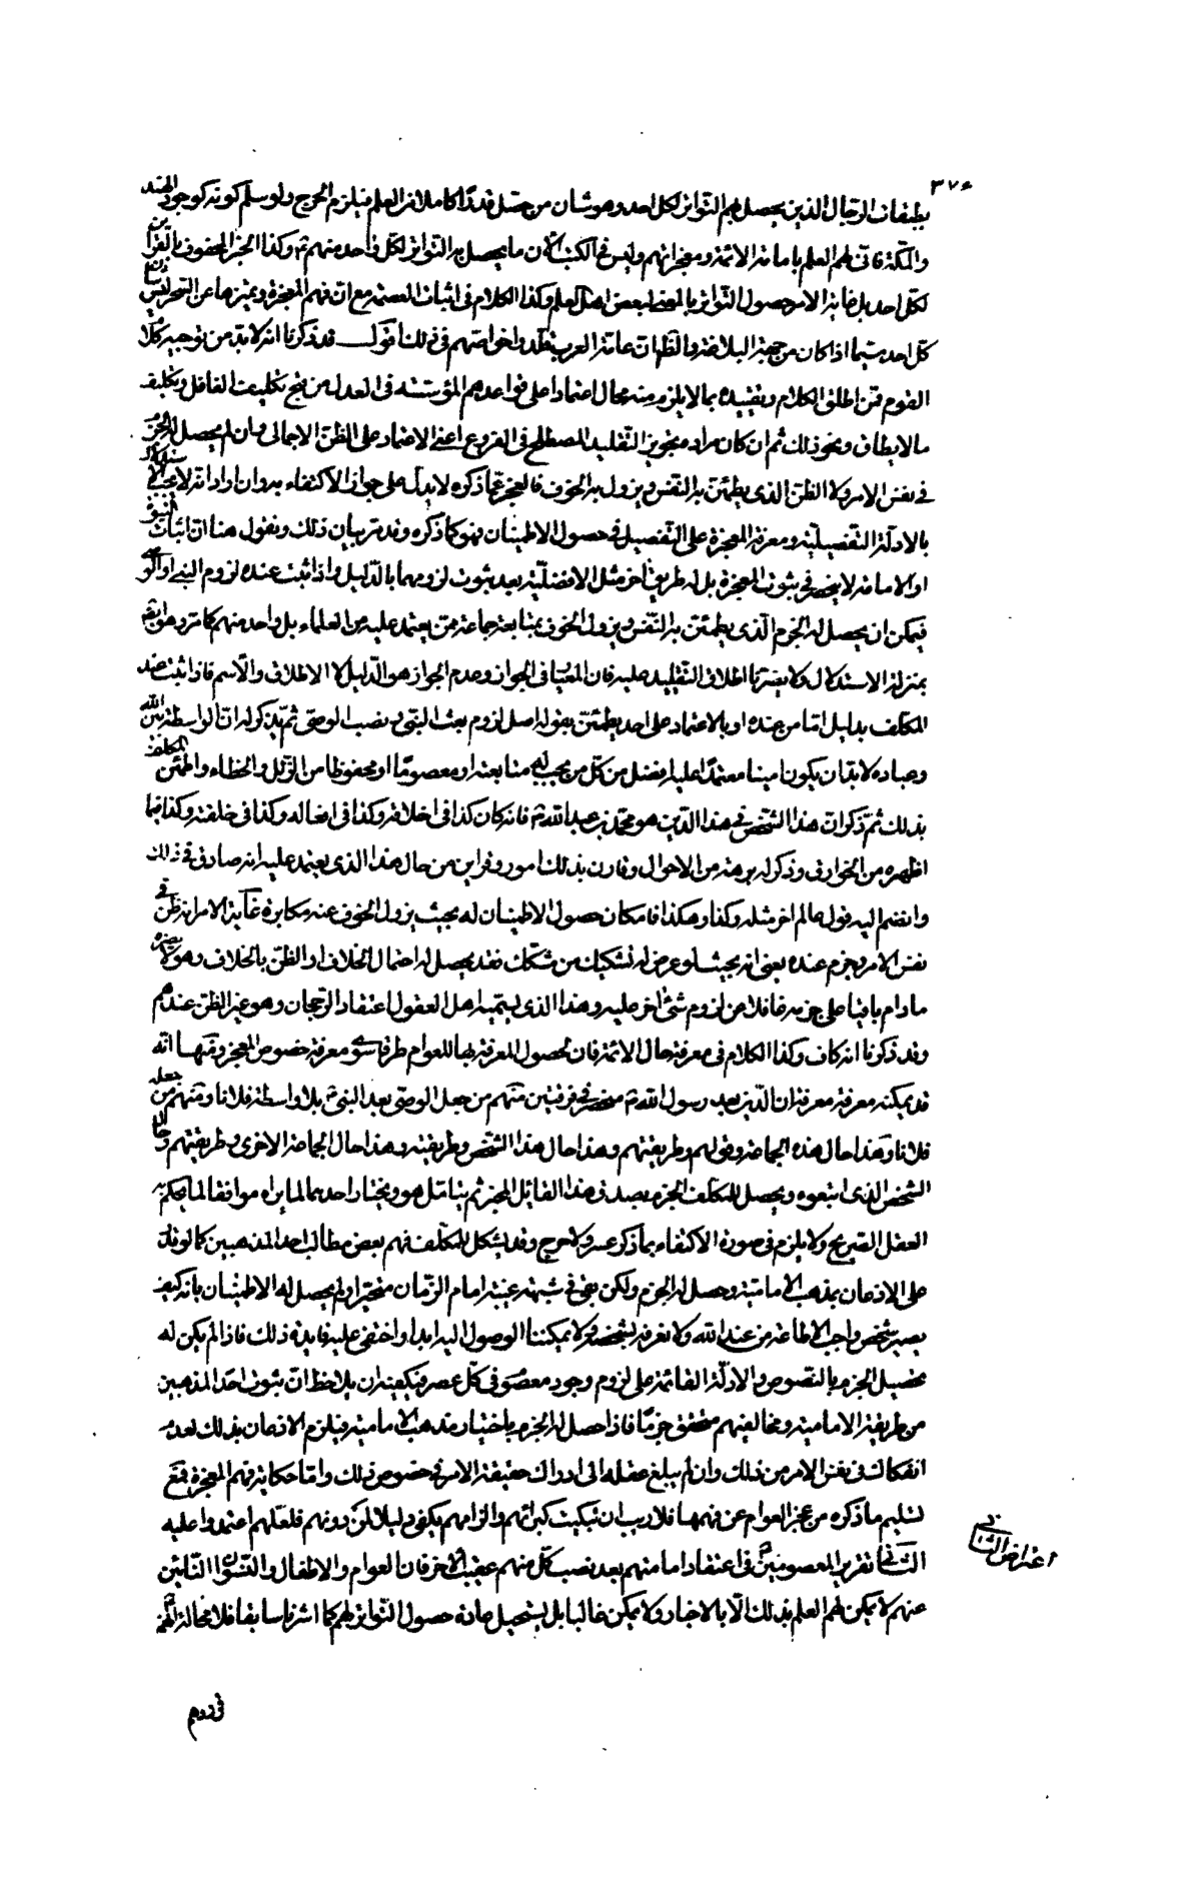 ٣٧٤
بطبقات الرجال الذين يحصل بهم التواتر لكل احد وهو شان من حصل قدرا كاملا من العلم فيلزم الحرج ولو سلم كونه كوجود الهند
والمكة فانى لهم العلم بامامة الائمة ومعجزاتهم وليس فى الكتب الآن ما يحصل به التواتر لكل واحد منهم وكذا الخبر المحفوف بالقراين
لكل احد بل غاية الامر حصول التواتر بالمعنى لبعض اهل العلم وكذا الكلام فى اثبات العصمة مع ان فهم المعجزة وتميزها عن السحر ليس شان
كل احد سيما اذا كان من جهة البلاغة والظهات عامة العرب قلدوا خواصهم فى ذلك اقول قد ذكرنا انه لا بد من توجيه كلام
القوم فمن اطلق الكلام وتقييده بما لا يلزم منه محال اعتمادا على قواعدهم المؤسسة فى العدل من قبح تكليف الغافل وتكليف
ما لا يطاق ونحو ذلك ثم ان كان مراده تجويز التقليد المصطلح فى الفروع اعنى الاعتماد على الظن الاجمالى وان لم يحصل له الجزم
فى نفس الامر ولا الظن الذى يطمئن به النفس ويزول به الخوف فالعجز عما ذكره لا يدل على جواز الاكتفاء به وان اراد انه لا يجب الاستدلال
بالادلة التفصيلية ومعرفة المعجزة على التفصيل فى حصول الاطمينان فهو كما ذكره وقد مر بيان ذلك ونقول هنا ان اثبات النبوة
او الامامة لا ينحصر فى ثبوت المعجزة بل له طريق آخر مثل الافضلية بعد ثبوت لزومها بالدليل واذا ثبت عنده لزوم النبى او الوصى
فيمكن ان يحصل له الجزم الذى يطمئن به النفس ويزول الخوف بمتابعة جماعة ممن يعتمد عليه من العلماء بل واحد منهم كما مر وهو ايضا
بمنزلة الاستدلال ولا يضرنا اطلاق التقليد عليه فان المعيار فى الجواز وعدم الجواز هو الدليل لا الاطلاق والاسم فاذا ثبت عند
المكلف بدليل اما من عنده او بالاعتماد على احد يطمئن بقوله اصل لزوم بعث النبى ونصب الوصى ثم يذكر له ان الواسطة بين الله
وعباده لا بد ان يكون امينا معتمدا عليه افضل من كل من يجب عليه متابعته او معصوما او محفوظا من الزلل والخطاء واطمئن المكلف
بذلك ثم ذكر ان هذا الشخص فى هذا الدين هو محمد بن عبد الله فانه كان كذا فى اخلاقه وكذا فى افعاله وكذا فى خلقته وكذا فيما
اظهره من الخوارق وذكر له برهة من الاحوال وقارن بذلك امور وقراين من حال هذا الذى يعتمد عليه انه صادق فى ذلك
وانضم اليه قول عالم آخر مثله وكذا وهكذا فامكان حصول الاطمينان له بحيث يزول الخوف عنه مكابرة غاية الامر انه ظن فى
نفس الامر وجزم عنده يعنى انه بحيث لو عرض له تشكيك من مشكك فقد يحصل له احتمال الخلاف او الظن بالخلاف وهو لا يضره
ما دام باقيا على جزمه غافلا عن لزوم شئ آخر عليه وهذا الذى يسميه اهل العقول اعتقاد الرجحان وهو غير الظن عندهم
وقد ذكرنا انه كاف وكذا الكلام فى معرفة حال الائمة فان لحصول المعرفة بها للعوام طرقا سوى معرفة خصوص المعجز ومنها انه
قد يمكنه معرفة معرفة ان الدين بعد رسول الله منحصر فى فرقتين منهم من جعل الوصى بعد النبى بلا واسطة فلانا ومنهم من جعله
فلانا وهذا حال هذه الجماعة وقولهم وطريقتهم وهذا حال هذا الشخص وطريقته وهذا حال الجماعة الاخرى وطريقتهم وحال
الشخص الذى اتبعوه ويحصل للمكلف الجزم بصدق هذا القائل المخبر ثم يتامل هو ويختار احدهما لما يراه موافقا لما يحكم به
العقل الصريح ولا يلزم فى صورة الاكتفاء بما ذكر عسر ولا حرج وقد يشكل للمكلف فهم بعض مطالب احد المذهبين كما لو قدر
على الاذعان بمذهب الامامية وحصل له الجزم ولكن بقى فى شبهة غيبة امام الزمان متحيرا ولم يحصل له الاطمينان بانه كيف
يصير شخص واجب الاطاعة من عند الله ولا نعرفه بشخصه ولا يمكننا الوصول اليه ابدا واختفى عليه فايدة ذلك فاذا لم يكن له
تحصيل الجزم بالنصوص والادلة القائمة على لزوم وجود معصوم فى كل عصر فيكفيه ان يلاحظ ان ثبوت احد المذهبين
من طريقة الامامية ومخالفيهم متحقق جزما فاذا حصل له الجزم باختيار مذهب الامامية فيلزم الاذعان بذلك لعدم
انفكاك فى نفس الامر من ذلك وان لم يبلغ عقله الى ادراك حقيقة الامر فى خصوص ذلك واما حكاية فهم المعجزة فمع
تسليم ما ذكره من عجز العوام عن فهمها فلا ريب ان تبكيت كبرائهم والزامهم يكفى دليلا لمن دونهم فلعلهم اعتمدوا عليه
الثانى تقرير المعصومين فى اعتقاد امامتهم بعد نصب كل منهم عقيب الآخر فان العوام والاطفال والنسوان النائين
عنهم لا يمكن لهم العلم بذلك الا بالاخبار ولا يمكن غالبا بل يستحيل عادة حصول التواتر لهم كما اشرنا سابقا فلا محالة انهم
اعتراض الثانى